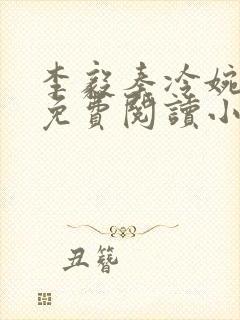 李毅秦冷婉
免費閱讀小
丑簪